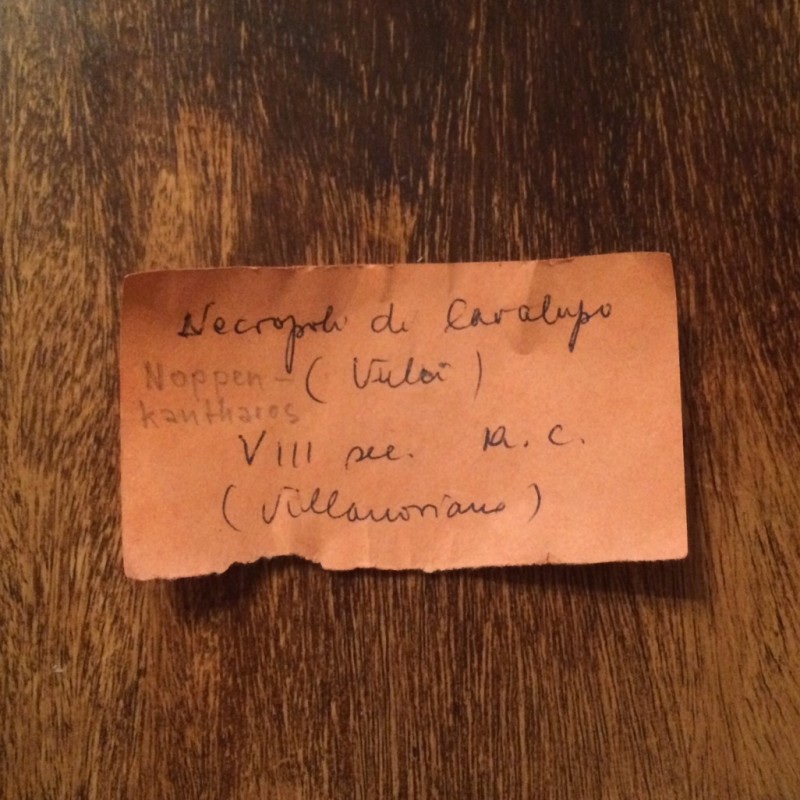 Necropoli di Cavalupo
Noppen- (Vulci)
kantharos
VIII sec. A. C.
(Villanoviano)